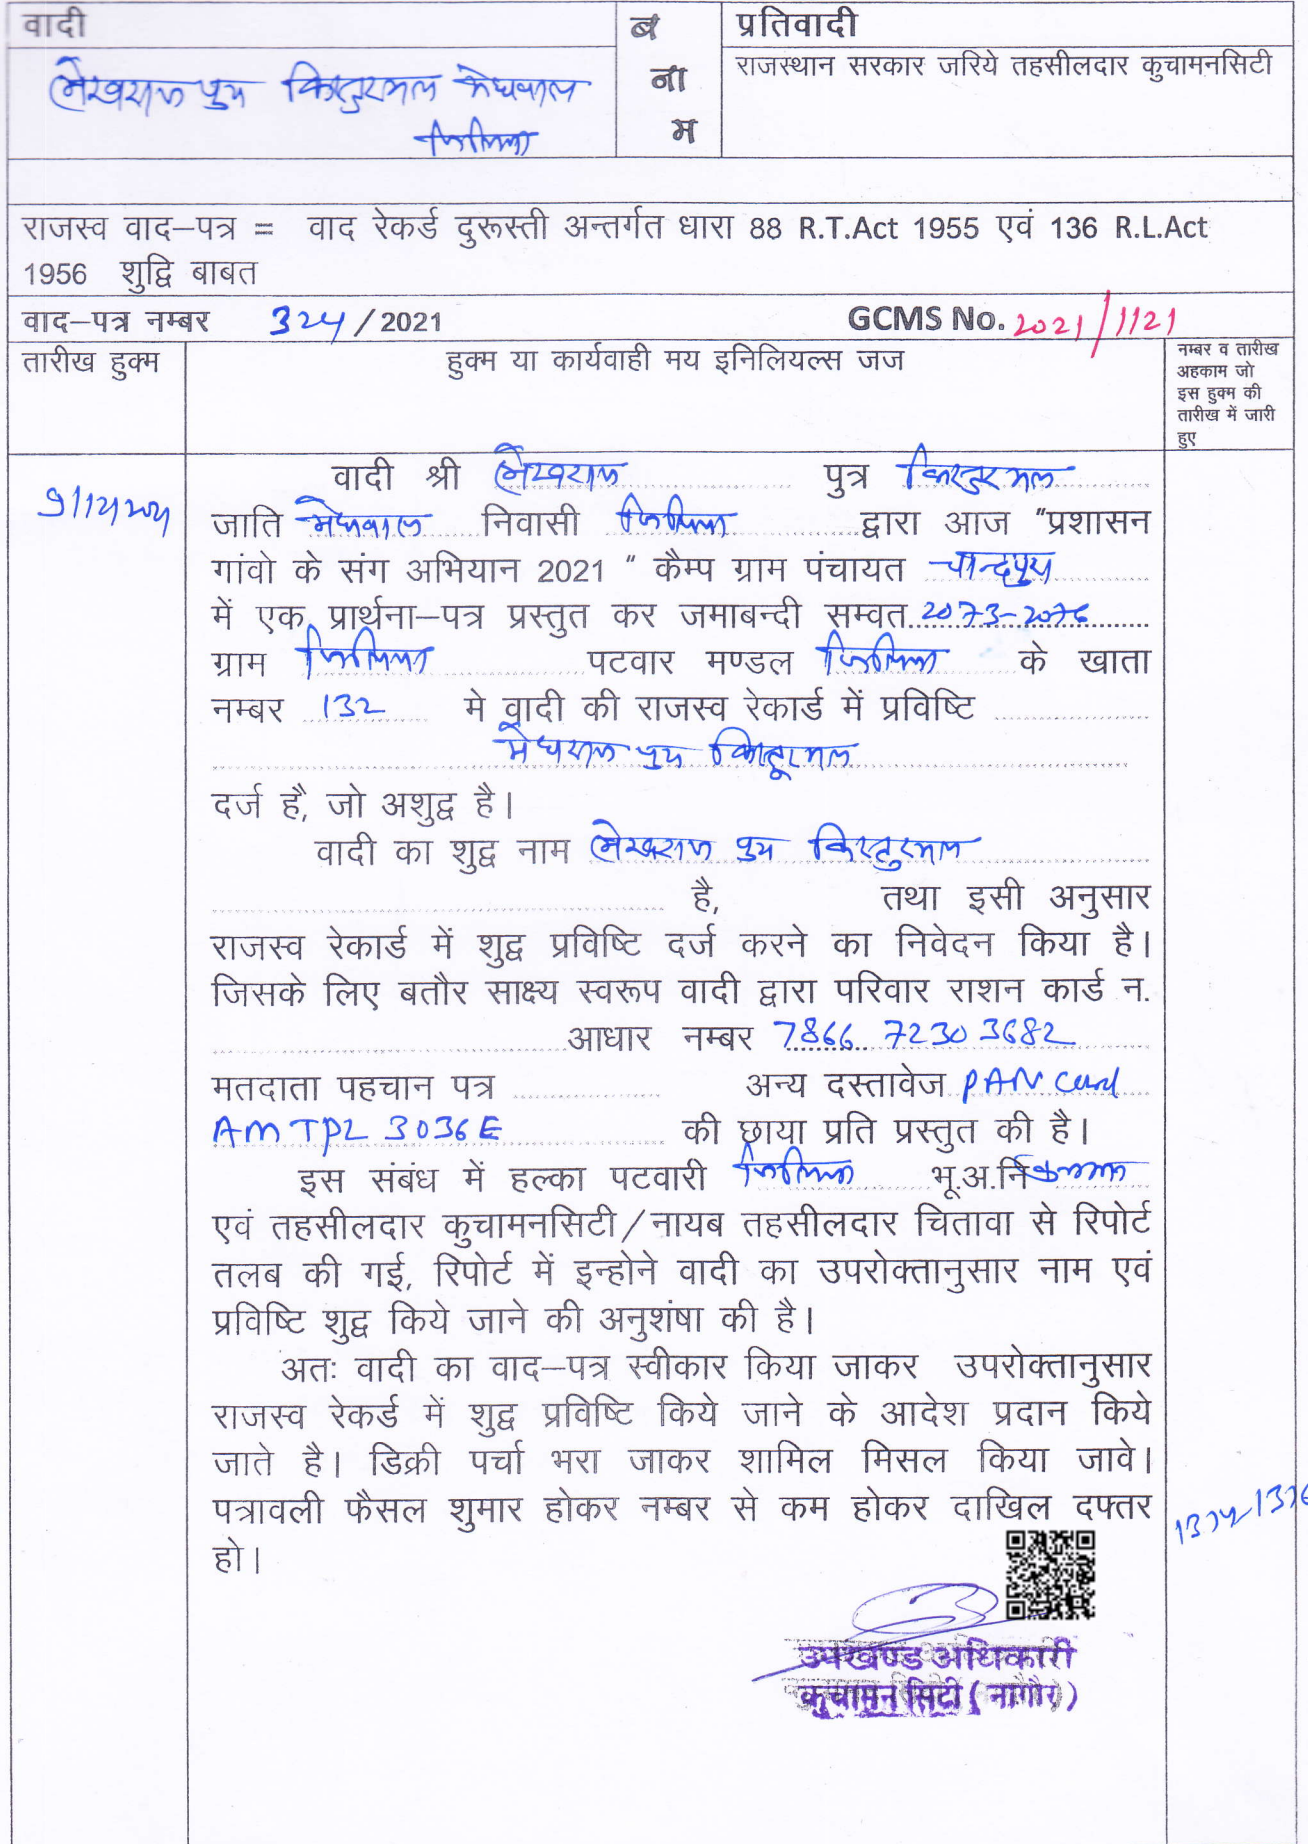 वादी
ब
ना
म
प्रतिवादी
लेखराज पुत्र किस्तुरमल मेघवाल
जिलिया
राजस्थान सरकार जरिये तहसीलदार कुचामनसिटी
राजस्व वाद–पत्र = वाद रेकर्ड दुरूस्ती अन्तर्गत धारा 88 R.T.Act 1955 एवं 136 R.L.Act
1956 शुद्वि बाबत
वाद–पत्र नम्बर 324/2021 GCMS No. 2021/1121
तारीख हुक्म
हुक्म या कार्यवाही मय इनिलियल्स जज
नम्बर व तारीख
अहकाम जो
इस हुक्म की
तारीख में जारी
हुए
9/12/2021
वादी श्री लेखराज पुत्र किस्तुरमल
जाति मेघवाल निवासी जिलिया द्वारा आज "प्रशासन
गांवो के संग अभियान 2021 " कैम्प ग्राम पंचायत चान्दपुरा
में एक प्रार्थना–पत्र प्रस्तुत कर जमाबन्दी सम्वत 2073-2076
ग्राम जिलिया पटवार मण्डल जिलिया के खाता
नम्बर 132 मे वादी की राजस्व रेकार्ड में प्रविष्टि
मेघराज पुत्र किस्तूरमल
दर्ज है, जो अशुद्व है।
वादी का शुद्व नाम लेखराज पुत्र किस्तुरमल
है, तथा इसी अनुसार
राजस्व रेकार्ड में शुद्व प्रविष्टि दर्ज करने का निवेदन किया है।
जिसके लिए बतौर साक्ष्य स्वरूप वादी द्वारा परिवार राशन कार्ड न.
आधार नम्बर 7866 7230 3682
मतदाता पहचान पत्र अन्य दस्तावेज PAN Card
AMTPL 3036E की छाया प्रति प्रस्तुत की है।
इस संबंध में हल्का पटवारी जिलिया भू.अ.नि
एवं तहसीलदार कुचामनसिटी/नायब तहसीलदार चितावा से रिपोर्ट
तलब की गई, रिपोर्ट में इन्होने वादी का उपरोक्तानुसार नाम एवं
प्रविष्टि शुद्व किये जाने की अनुशंषा की है।
अतः वादी का वाद–पत्र स्वीकार किया जाकर उपरोक्तानुसार
राजस्व रेकर्ड में शुद्व प्रविष्टि किये जाने के आदेश प्रदान किये
जाते है। डिक्री पर्चा भरा जाकर शामिल मिसल किया जावे।
पत्रावली फैसल शुमार होकर नम्बर से कम होकर दाखिल दफ्तर
हो।
उपखण्ड अधिकारी
कुचामन सिटी (नागौर)